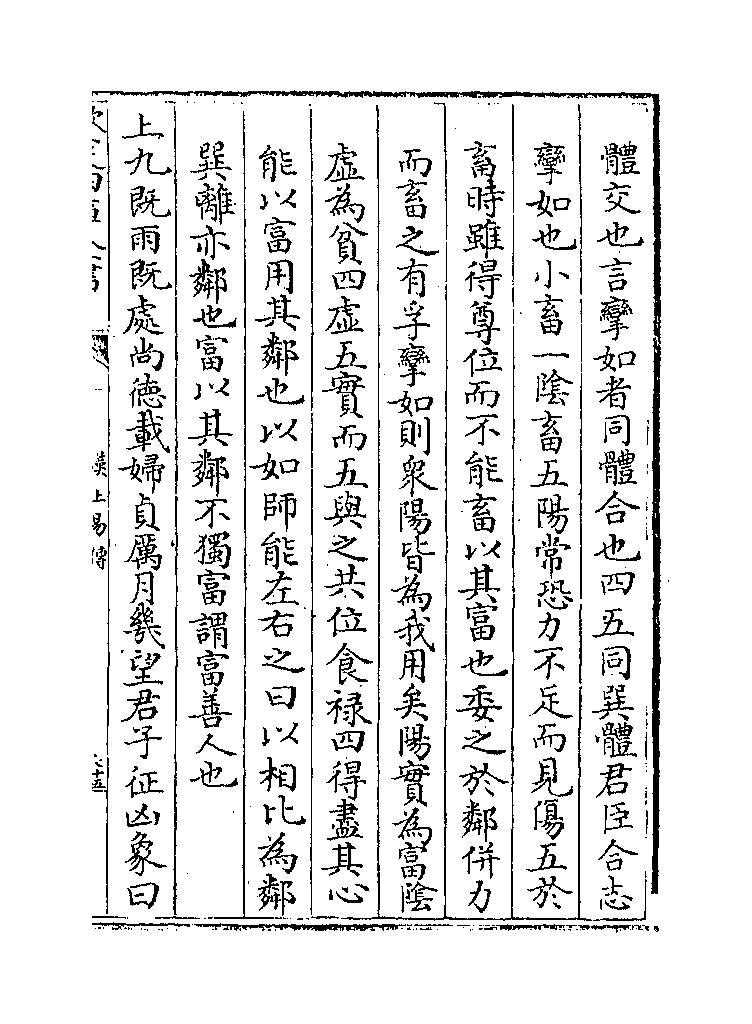 體交也言攣如者同體合也四五同巽體君臣合志
攣如也小畜一隂畜五陽常恐力不足而見傷五於
畜時雖得尊位而不能畜以其富也委之於鄰併力
而畜之有孚攣如則衆陽皆為我用矣陽實為富隂
虛為貧四虛五實而五與之共位食禄四得盡其心
能以富用其鄰也以如師能左右之曰以相比為鄰
巽離亦鄰也富以其鄰不獨富謂富善人也
上九既雨既處尚徳載婦貞厲月幾望君子征凶象曰
漢上易傳
六十五